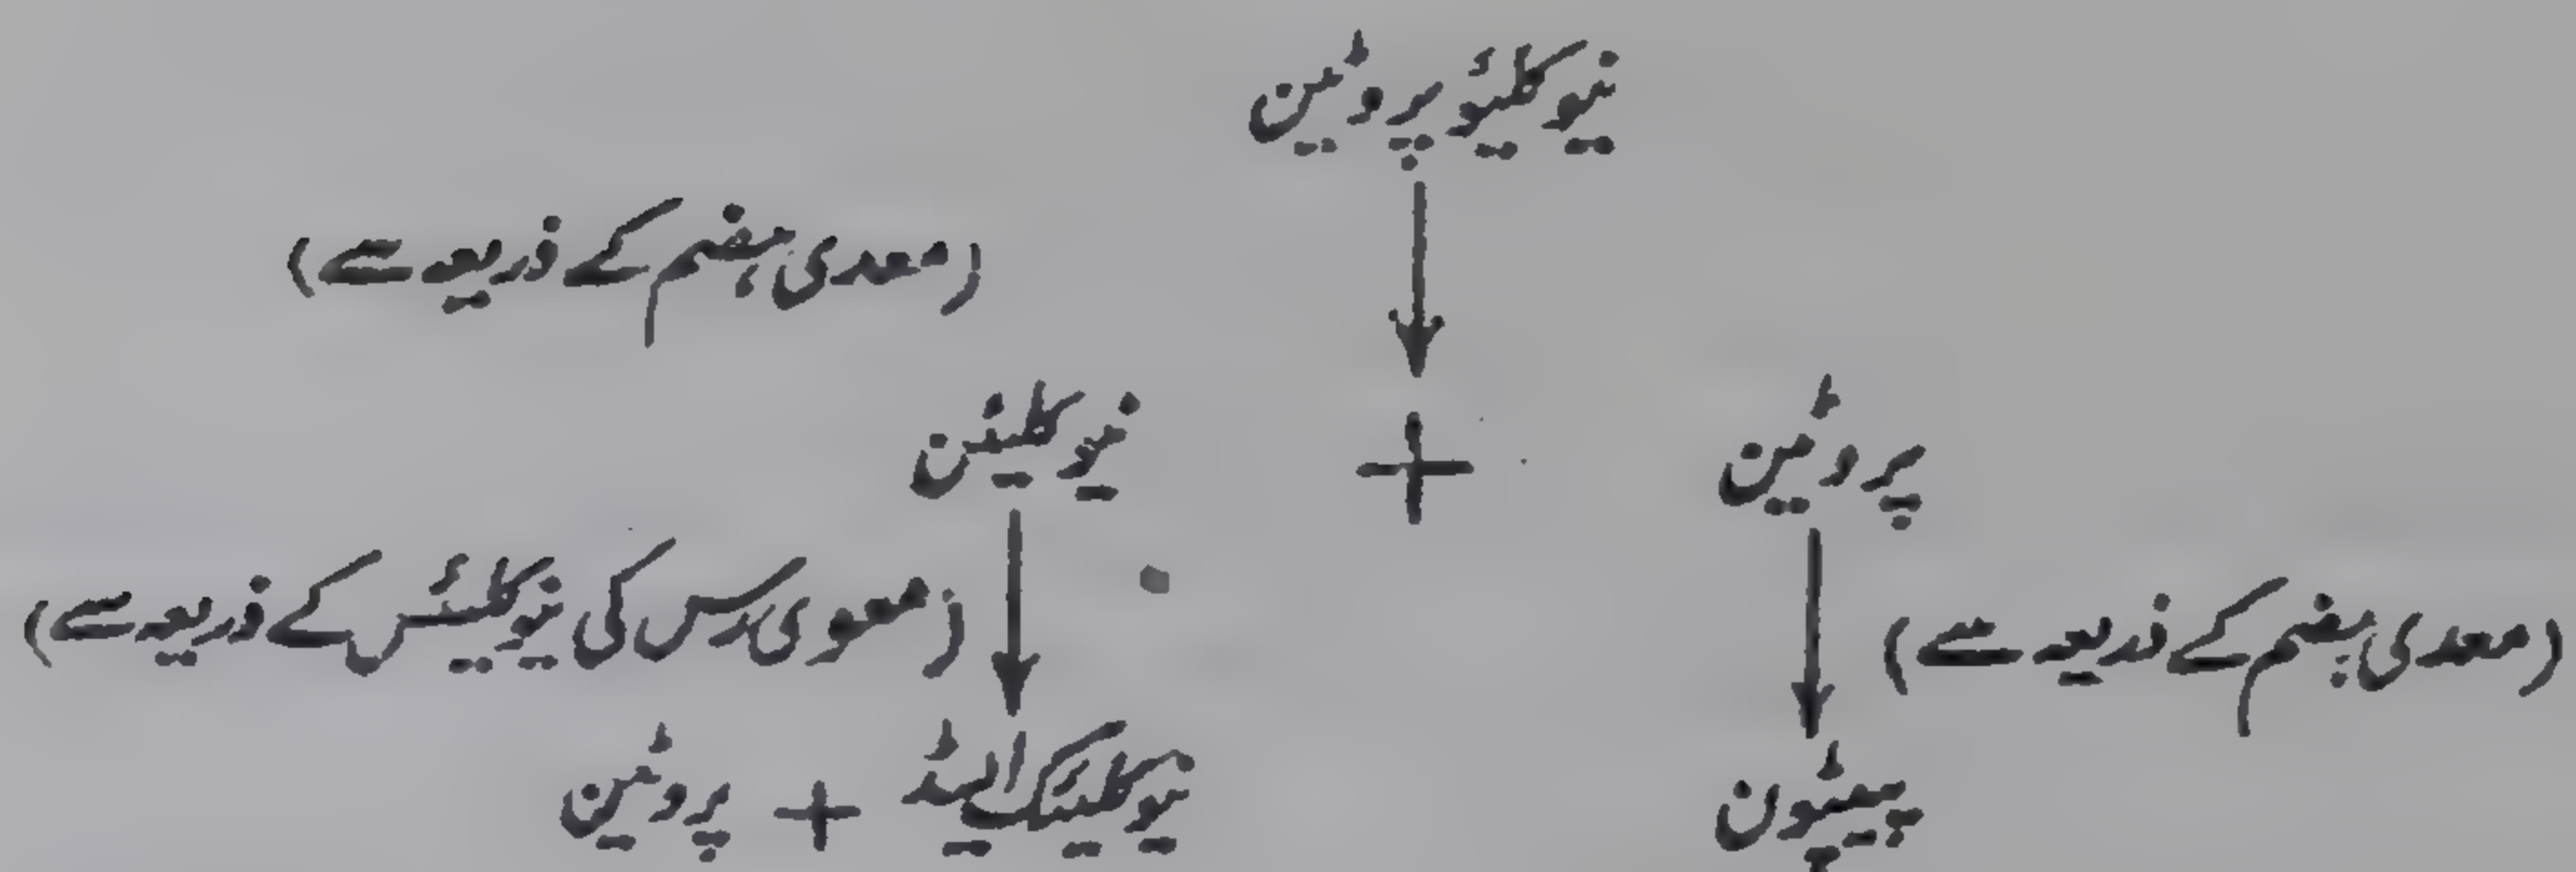 نیوکلیئو پروٹین
(معدی ہضم کے ذریعہ سے)
پروٹین + نیوکلیئن
(معدی ہضم کے ذریعہ سے) (معوی رس کی نیوکلیئس کے ذریعہ سے)
پیپٹون نیوکلیئک ایسڈ + پروٹین